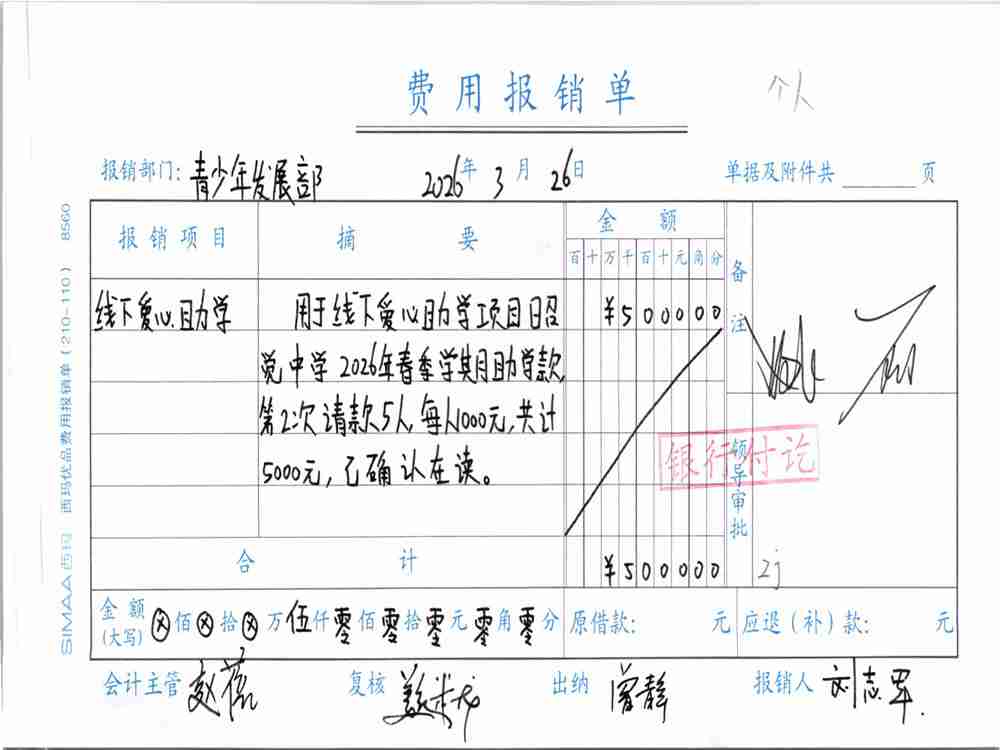 费用报销单
个人
报销部门: 青少年发展部 2026年 3月 26日 单据及附件共 页
报销项目 摘要 金额 备注
百十万千百十元角分
线下爱心助学 用于线下爱心助学项目昭 ¥500000
觉中学2026年春季学期助学款,
第2次请款5人,每人1000元,共计
5000元,已确认在读。
银行付讫
领导审批
合计 ¥500000
金额(大写) ⊗佰⊗拾⊗万伍仟零佰零拾零元零角零分 原借款: 元 应退(补)款: 元
会计主管 复核 出纳 曾静 报销人 刘志军.
SIMAA 西玛 西玛优品费用报销单(210-110) 8560